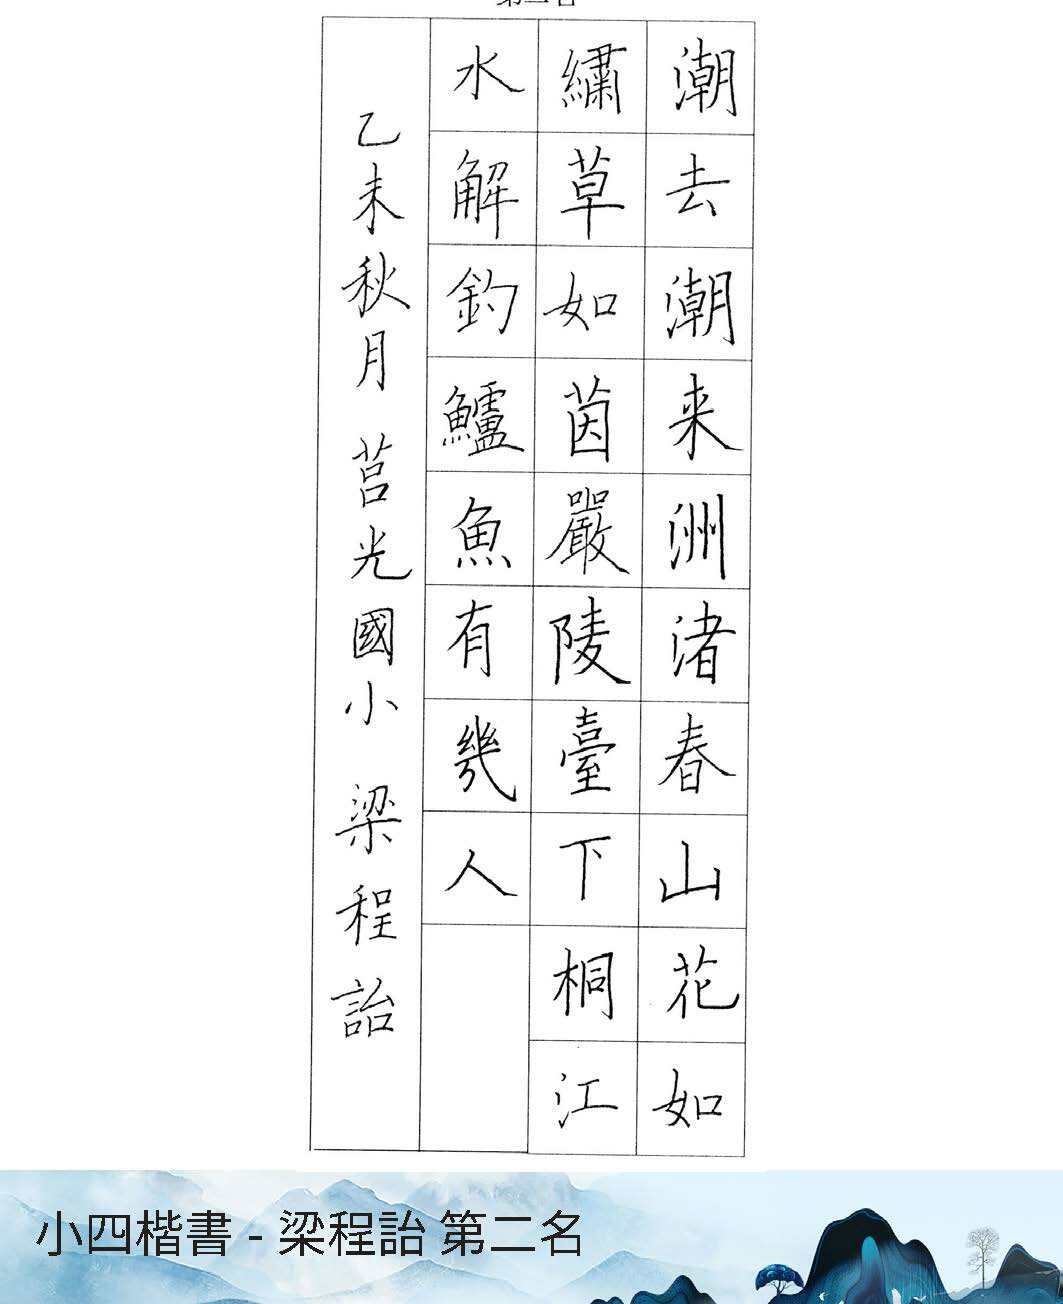 第二名
潮去潮来洲渚春山花如
繡草如茵嚴陵臺下桐江
水解釣鱸魚有幾人
乙未秋月 莒光國小 梁程詒
小四楷書 - 梁程詒 第二名